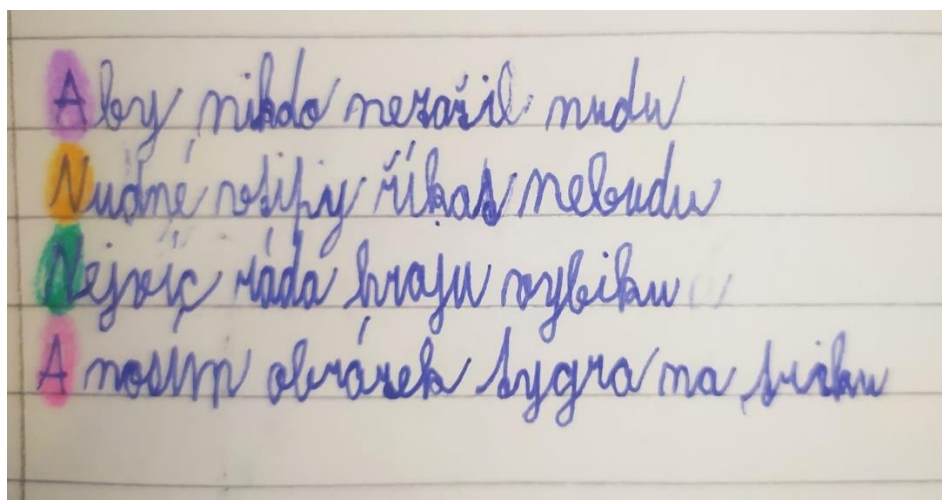 Aby nikdo nezažil nudu
Nudné vtipy říkat nebudu
Nejvíc ráda hraju vybiku
A nosím obrázek tygra na triku